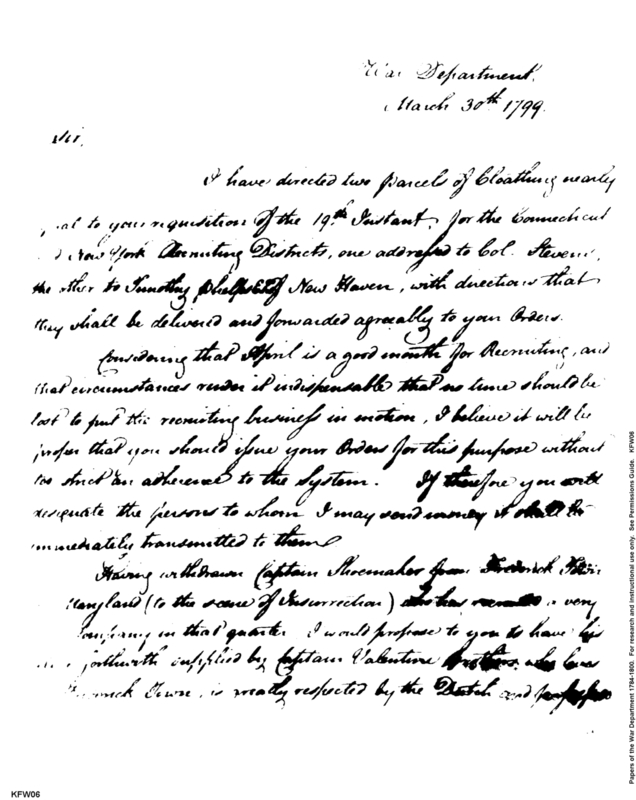 War Department.
March 30th 1799.
Sir.
I have directed two parcels of Cloathing nearly
to your requisition of the 19th Instant, for the Connecticut
New York Recruiting Districts, one addressed to Col. Stevens,
the other to Timothy Phelps Esq of New Haven, with directions that
they shall be delivered and forwarded agreeably to your Orders.
Considering that April is a good month for Recruiting, and
that circumstances render it indispensable that no time should be
lost to put the recruiting business in motion, I believe it will be
proper that you should issue your Orders for this purpose without
too strict an adherence to the System. If therefore you will
designate the persons to whom I may send money it shall be
immediately transmitted to them
Having withdrawn Captain Shoemaker from Frederick Town
Maryland (to the scene of Insurrection) who has a very
company in that quarter, I would propose to you to have his
forthwith supplied by Captain Valentine Brothers, who lives
Town, is greatly respected by the Dutch and
Papers of the War Department 1784-1800. For research and instructional use only. See Permissions Guide. KFW06
KFW06